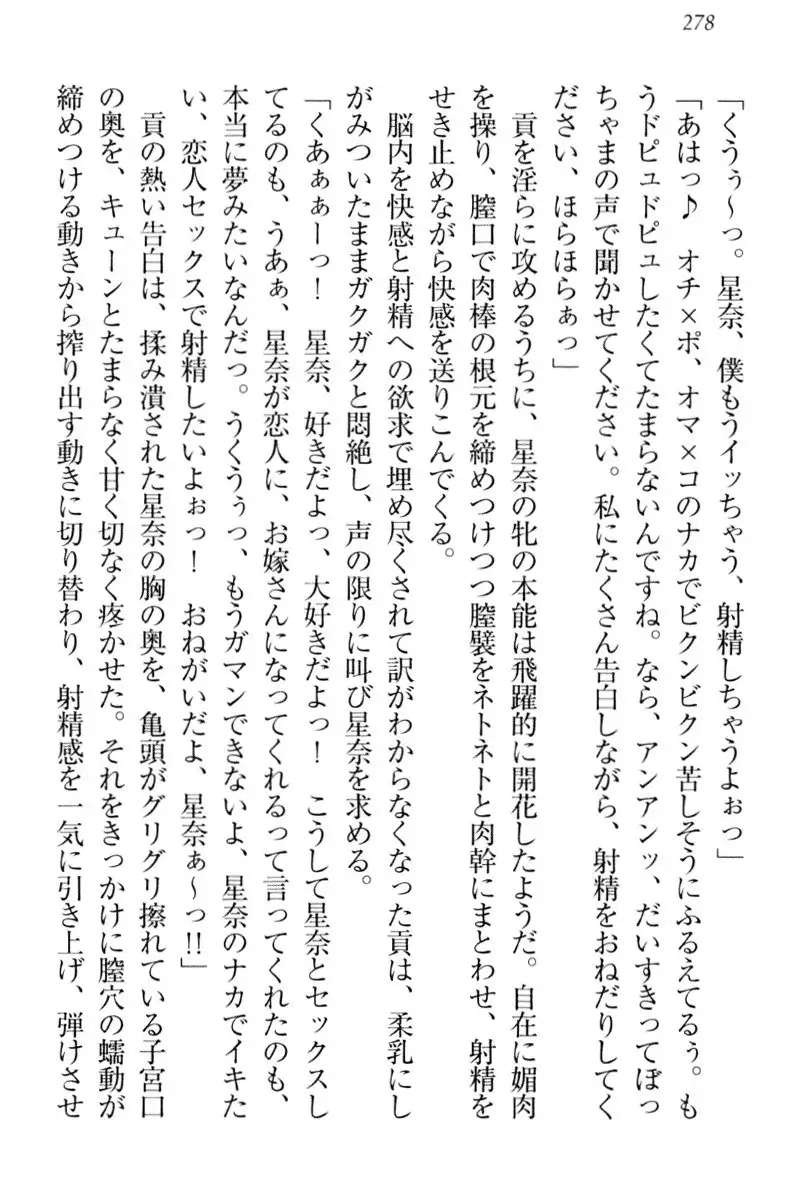 278
「くうぅ～っ。星奈、僕もうイッちゃう、射精しちゃうよぉっ」
「あはっ♪　オチ×ポ、オマ×コのナカでビクンビクン苦しそうにふるえてるぅ。も
うドピュドピュしたくてたまらないんですね。なら、アンアンッ、だいすきってぼっ
ちゃまの声で聞かせてください。私にたくさん告白しながら、射精をおねだりしてく
ださい、ほらほらぁっ」
　貢を淫らに攻めるうちに、星奈の牝の本能は飛躍的に開花したようだ。自在に媚肉
を操り、膣口で肉棒の根元を締めつけつつ膣襞をネトネトと肉幹にまとわせ、射精を
せき止めながら快感を送りこんでくる。
　脳内を快感と射精への欲求で埋め尽くされて訳がわからなくなった貢は、柔乳にし
がみついたままガクガクと悶絶し、声の限りに叫び星奈を求める。
「くあぁぁーっ！　星奈、好きだよっ、大好きだよっ！　こうして星奈とセックスし
てるのも、うあぁ、星奈が恋人に、お嫁さんになってくれるって言ってくれたのも、
本当に夢みたいなんだっ。うくうぅっ、もうガマンできないよ、星奈のナカでイキた
い、恋人セックスで射精したいよぉっ！　おねがいだよ、星奈ぁ～っ!!」
　貢の熱い告白は、揉み潰された星奈の胸の奥を、亀頭がグリグリ擦れている子宮口
の奥を、キューンとたまらなく甘く切なく疼かせた。それをきっかけに膣穴の蠕動が
締めつける動きから搾り出す動きに切り替わり、射精感を一気に引き上げ、弾けさせ